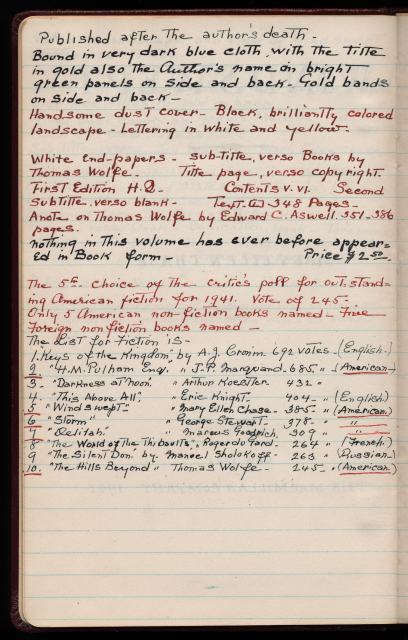 Published after the author's death -
Bound in very dark blue cloth, with the title
in gold also the Author's name on bright
green panels on side and back - Gold bands
on side and back -
Handsome dust cover - Black, brilliantly colored
landscape - Lettering in white and yellow.
White End-papers - sub-title, verso Books by
Thomas Wolfe. Title page, verso copyright.
First Edition H.Q. Contents V. VI. Second
Subtitle, verso blank - Text. (1) 348 Pages -
A note on Thomas Wolfe by Edward C. Aswell. 351-386
pages.
nothing in this volume has ever before appear=
ed in Book form - Price $2.50
The 5th choice of the critic's poll for out.stand=
ing American fiction for 1941. Vote of 245.
Only 5 American non-fiction books named - Five
Foreign non fiction books named -
The List for Fiction is -
1. "Keys of the Kingdom" by A.J. Cronin 692 votes - (English.)
2. "H.M. Pulham Esq. " J.P. Marquand. 685 " (American -)
3. "Darkness at Noon. " Arthur Koestler 432 "
4. "This Above All." " Eric Knight. 404 - " (English)
5 "Windswept - " Mary Ellen Chase. 385 - " (American.)
6 "Storm" " George Stewart. 378 - " "
7 "Delilah." " Marcus Goodrich, 309 " "
8 "The World of The Thibaults", Roger du Gard. - 264 " (French.)
9 "The Silent Don" by. Manoel Sholokoff - 263 " (Russian -)
10. "The Hills Beyond " Thomas Wolfe - 245 - " (American)